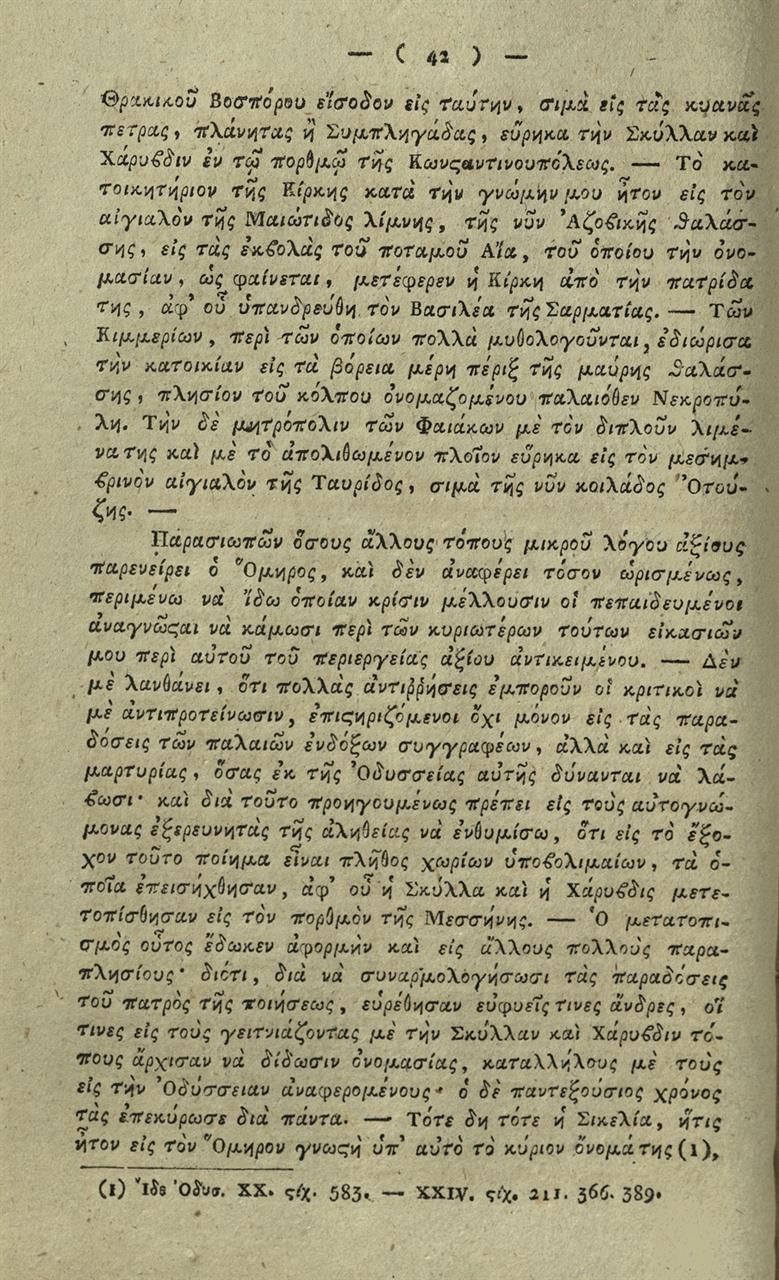 — ( 42 ) —
Θρακικοῦ Βοσπόρου εἴσοδον εἰς ταύτην, σιμὰ εἰς τὰς κυανᾶς
πετρας, πλάνητας ἢ Συμπληγάδας, εὕρηκα τὴν Σκύλλαν καὶ
Χάρυϐδιν ἐν τῷ πορθμῷ τῆς Κωνϛαντινουπόλεως. — Τὸ κα-
τοικητήριον τῆς Κίρκης κατὰ τὴν γνώμην μου ἦτον εἰς τὸν
αἰγιαλὸν τῆς Μαιώτιδος λίμνης, τῆς νῦν Ἀζοϐικῆς ϑαλάσ-
σης, εἰς τὰς ἐκϐολὰς τοῦ ποταμοῦ Αἴα, τοῦ ὁποίου τὴν ὀνο-
μασίαν, ὡς φαίνεται, μετέφερεν ἡ Κίρκη ἀπὸ τὴν πατρίδα
της, ἀφ' οὗ ὑπανδρεύθη τὸν Βασιλέα τῆς Σαρματίας. — Τῶν
Κιμμερίων, περὶ τῶν ὁποίων πολλὰ μυθολογοῦνται, ἐδιώρισα
τὴν κατοικίαν εἰς τὰ βόρεια μέρη πέριξ τῆς μαύρης ϑαλάσ-
σης, πλησίον τοῦ κόλπου ὀνομαζομένου παλαιόθεν Νεκροπύ-
λη. Τὴν δὲ μητρόπολιν τῶν Φαιάκων μὲ τὸν διπλοῦν λιμέ-
να της καὶ μὲ τὸ ἀπολιθωμένον πλοῖον εὕρηκα εἰς τὸν μεσημ-
ϐρινὸν αἰγιαλὸν τῆς Ταυρίδος, σιμὰ τῆς νῦν κοιλάδος Ὀτού-
ζης. —
Παρασιωπῶν ὅσους ἄλλους τόπους μικροῦ λόγου ἀξίους
παρενείρει ὁ Ὅμηρος, καὶ δὲν ἀναφέρει τόσον ὡρισμένως,
περιμένω νὰ ἴδω ὁποίαν κρίσιν μέλλουσιν οἱ πεπαιδευμένοι
ἀναγνῶϛαι νὰ κάμωσι περὶ τῶν κυριωτέρων τούτων εἰκασιῶν
μου περὶ αὐτοῦ τοῦ περιεργείας ἀξίου ἀντικειμένου. — Δὲν
μὲ λανθάνει, ὅτι πολλὰς ἀντιῤῥήσεις ἐμποροῦν οἱ κριτικοὶ νὰ
μὲ ἀντιπροτείνωσιν, ἐπιϛηριζόμενοι ὄχι μόνον εἰς τὰς παρα-
δόσεις τῶν παλαιῶν ἐνδόξων συγγραφέων, ἀλλὰ καὶ εἰς τὰς
μαρτυρίας, ὅσας ἐκ τῆς Ὀδυσσείας αὐτῆς δύνανται νὰ λά-
ϐωσι· καὶ διὰ τοῦτο προηγουμένως πρέπει εἰς τοὺς αὐτογνώ-
μονας ἐξερευνητὰς τῆς ἀληθείας νὰ ἐνθυμίσω, ὅτι εἰς τὸ ἔξο-
χον τοῦτο ποίημα εἶναι πλῆθος χωρίων ὑποϐολιμαίων, τὰ ὁ-
ποῖα ἐπεισήχθησαν, ἀφ' οὗ ἡ Σκύλλα καὶ ἡ Χάρυϐδις μετε-
τοπίσθησαν εἰς τὸν πορθμὸν τῆς Μεσσήνης. — Ὁ μετατοπι-
σμὸς οὗτος ἔδωκεν ἀφορμὴν καὶ εἰς ἄλλους πολλοὺς παρα-
πλησίους· διότι, διὰ νὰ συναρμολογήσωσι τὰς παραδόσεις
τοῦ πατρὸς τῆς ποιήσεως, εὑρέθησαν εὐφυεῖς τινες ἄνδρες, οἵ
τινες εἰς τοὺς γειτνιάζοντας μὲ τὴν Σκύλλαν καὶ Χάρυϐδιν τό-
πους ἄρχισαν νὰ δίδωσιν ὀνομασίας, καταλλήλους μὲ τοὺς
εἰς τὴν Ὀδύσσειαν ἀναφερομένους· ὁ δὲ παντεξούσιος χρόνος
τὰς ἐπεκύρωσε διὰ πάντα. — Τότε δη τότε ἡ Σικελία, ἥτις
ἦτον εἰς τὸν Ὅμηρον γνωϛὴ ὑπ' αὐτὸ τὸ κύριον ὄνομά της (1),
(1) Ἴδε Ὀδυσ. XX. ϛίχ. 583. — XXIV. ϛίχ. 211. 366. 389.